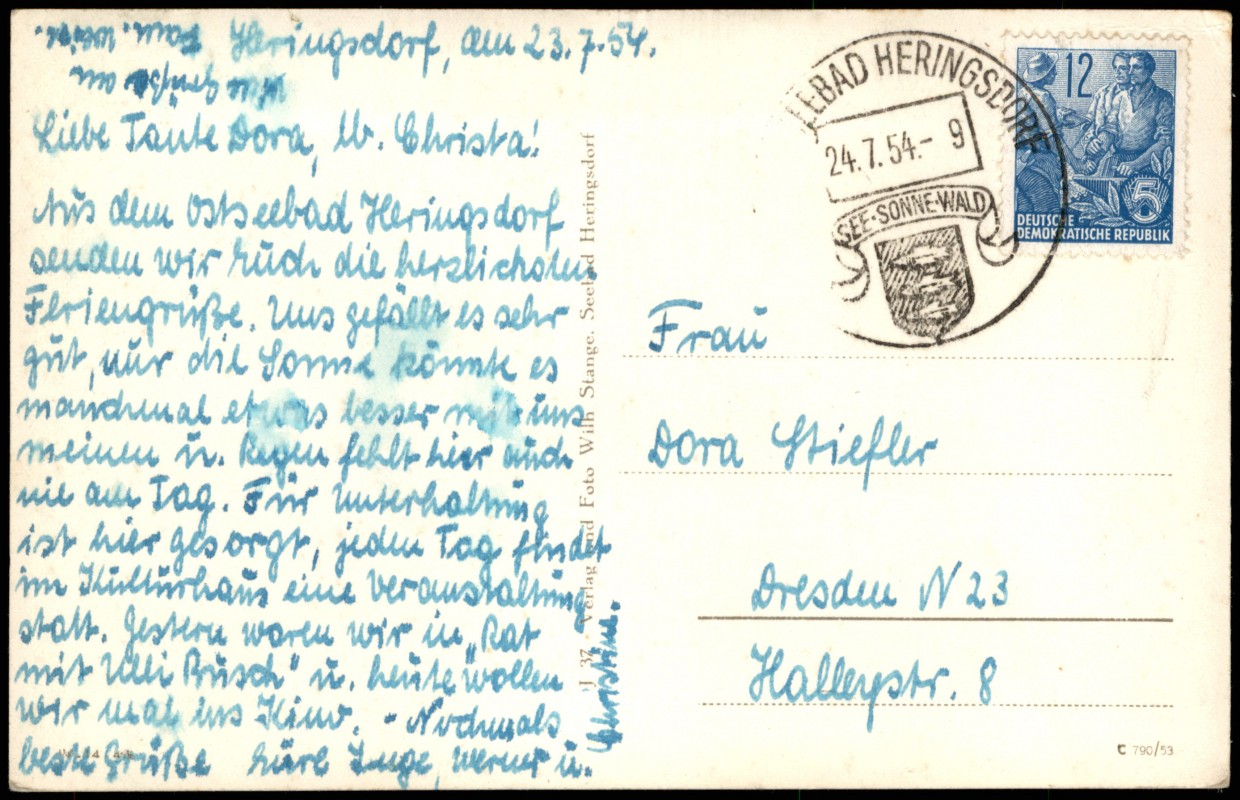 Heringsdorf, den 23.7.54.
Liebe Tante Dora, lb. Christa!
Aus dem Ostseebad Heringsdorf
senden wir Euch die herzlichsten
Feriengrüße. Uns gefällt es sehr
gut, nur die Sonne könnte es
manchmal etwas besser mit uns
meinen u. Regen fehlt hier auch
nie am Tag. Für Unterhaltung
ist hier gesorgt, jeden Tag findet
im Kulturhaus eine Veranstaltung
statt. Gestern waren wir in „Rat
mit Ulli Busch" u. heute wollen
wir mal ins Kino. - Nochmals
beste Grüße Eure Inge, Werner u.
Christine.
J 37 Verlag und Foto Wilh Stange. Seebad Heringsdorf
SEEBAD HERINGSDORF
24.7.54.- 9
SEE·SONNE·WALD
12
5
DEUTSCHE
DEMOKRATISCHE REPUBLIK
Frau
Dora Stiefler
Dresden N 23
Halleystr. 8
C 790/53